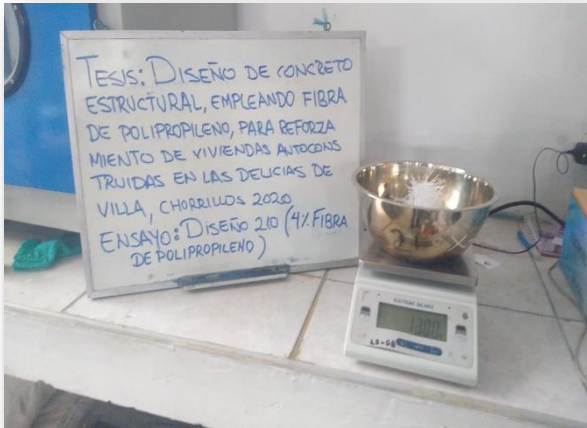 TESIS: DISEÑO DE CONCRETO
ESTRUCTURAL, EMPLEANDO FIBRA
DE POLIPROPILENO, PARA REFORZA
MIENTO DE VIVIENDAS AUTOCONS
TRUIDAS EN LAS DELICIAS DE
VILLA, CHORRILLOS 2020
ENSAYO: DISEÑO 210 (4% FIBRA
DE POLIPROPILENO)
ELECTRONIC BALANCE
LS-58